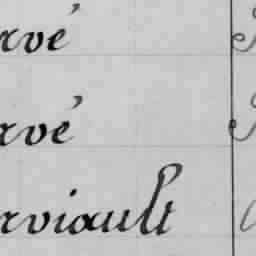 rvé
rvé
rviault